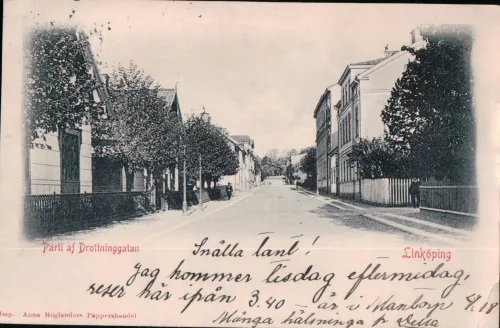 Parti af Drottninggatan
Linköping
Snälla tant!
Jag kommer tisdag eftermiddag,
reser här ifrån 3.40 – är i
Många hälsningar fr
Imp. Anna Höglanders Pappershandel